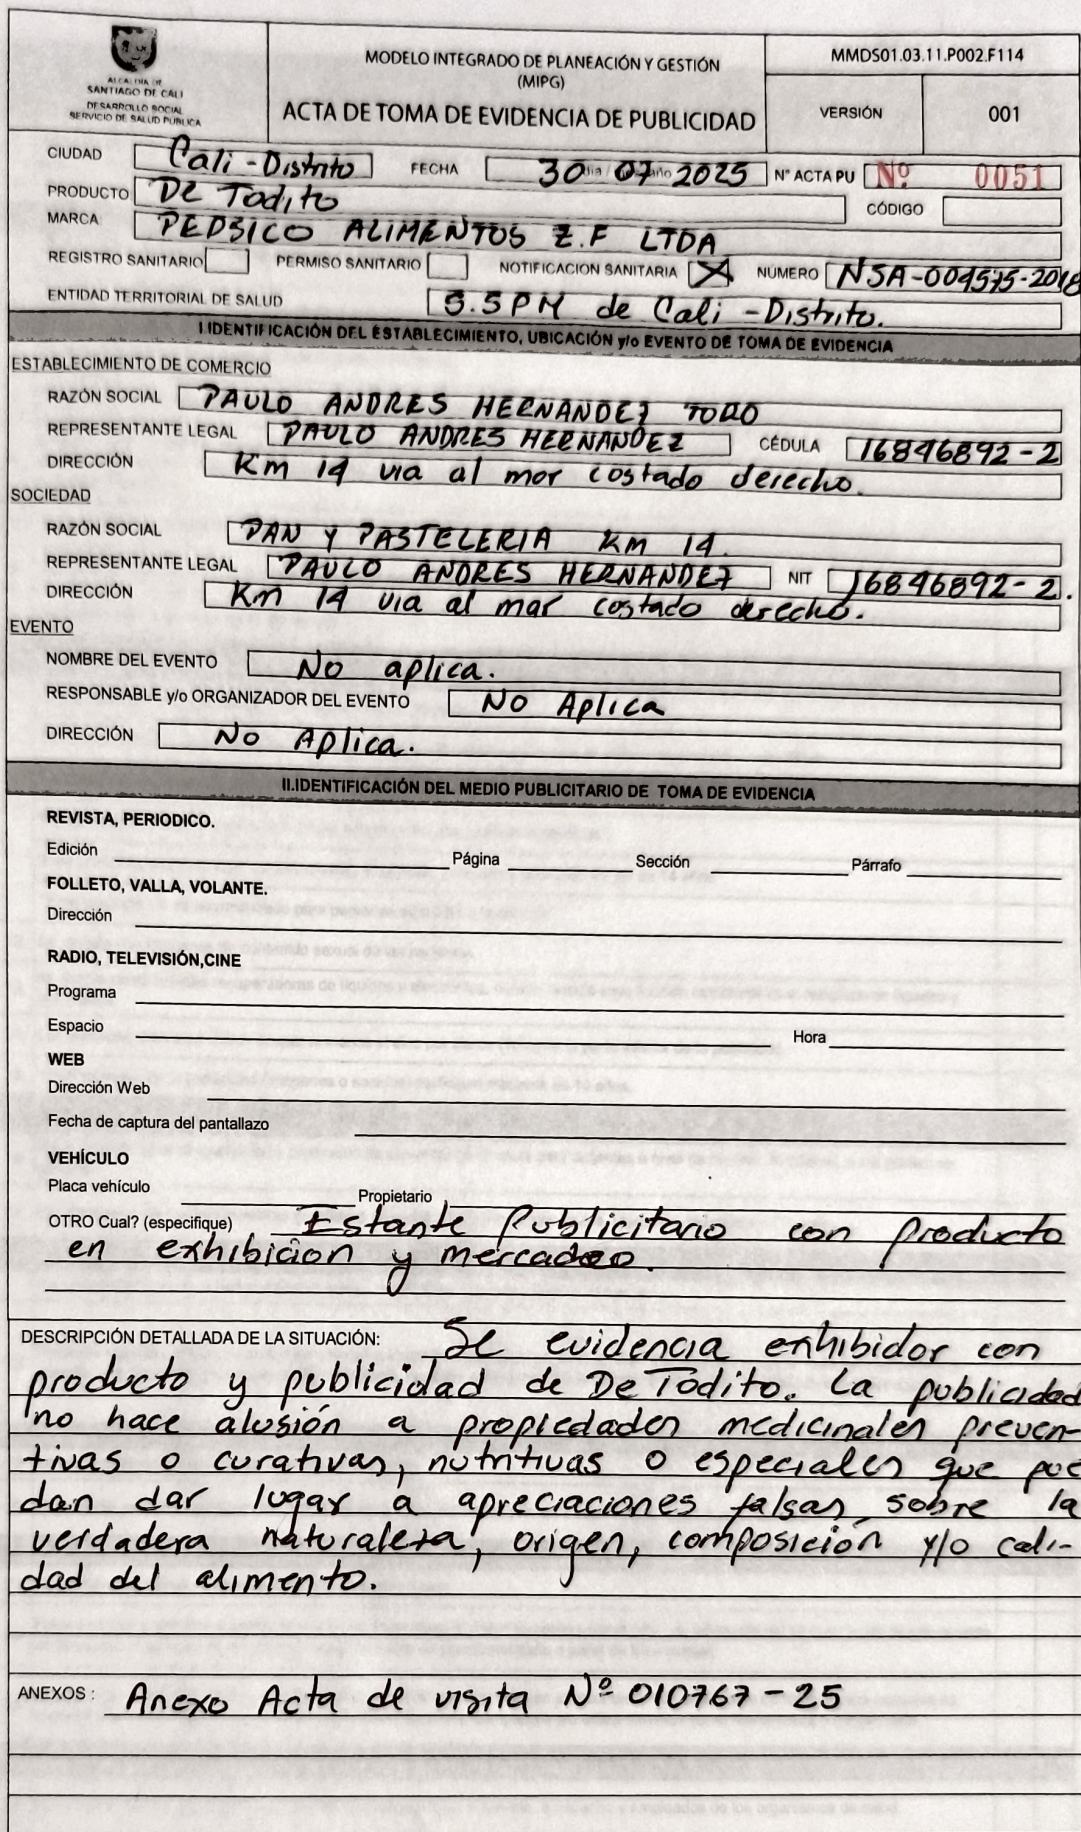 ALCALDÍA DE
SANTIAGO DE CALI
DESARROLLO SOCIAL
SERVICIO DE SALUD PÚBLICA
MODELO INTEGRADO DE PLANEACIÓN Y GESTIÓN
(MIPG)
ACTA DE TOMA DE EVIDENCIA DE PUBLICIDAD
MMDS01.03.11.P002.F114
VERSIÓN 001
CIUDAD Cali - Distrito FECHA 30 07 2025 N° ACTA PU Nº 0051
PRODUCTO De Todito CÓDIGO
MARCA PEPSICO ALIMENTOS Z.F LTDA
REGISTRO SANITARIO PERMISO SANITARIO NOTIFICACION SANITARIA X NÚMERO NSA-004575-2018
ENTIDAD TERRITORIAL DE SALUD S.SPM de Cali - Distrito.
I.IDENTIFICACIÓN DEL ESTABLECIMIENTO, UBICACIÓN y/o EVENTO DE TOMA DE EVIDENCIA
ESTABLECIMIENTO DE COMERCIO
RAZÓN SOCIAL PAULO ANDRES HERNANDEZ TORO
REPRESENTANTE LEGAL PAULO ANDRES HERNANDEZ CÉDULA 16846892-2
DIRECCIÓN Km 14 via al mar costado derecho.
SOCIEDAD
RAZÓN SOCIAL PAN Y PASTELERIA KM 14.
REPRESENTANTE LEGAL PAULO ANDRES HERNANDEZ NIT 16846892-2.
DIRECCIÓN Km 14 via al mar costado derecho.
EVENTO
NOMBRE DEL EVENTO No aplica.
RESPONSABLE y/o ORGANIZADOR DEL EVENTO No Aplica
DIRECCIÓN No Aplica.
II.IDENTIFICACIÓN DEL MEDIO PUBLICITARIO DE TOMA DE EVIDENCIA
REVISTA, PERIODICO.
Edición Página Sección Párrafo
FOLLETO, VALLA, VOLANTE.
Dirección
RADIO, TELEVISIÓN,CINE
Programa
Espacio Hora
WEB
Dirección Web
Fecha de captura del pantallazo
VEHÍCULO
Placa vehículo Propietario
OTRO Cual? (especifique) Estante Publicitario con producto
en exhibicion y mercadeo.
DESCRIPCIÓN DETALLADA DE LA SITUACIÓN: Se evidencia exhibidor con
producto y publicidad de De Todito. La publicidad
no hace alusión a propiedades medicinales preven-
tivas o curativas, nutritivas o especiales que pue
dan dar lugar a apreciaciones falsas sobre la
verdadera naturaleza, origen, composición y/o cali-
dad del alimento.
ANEXOS : Anexo Acta de visita Nº 010767-25